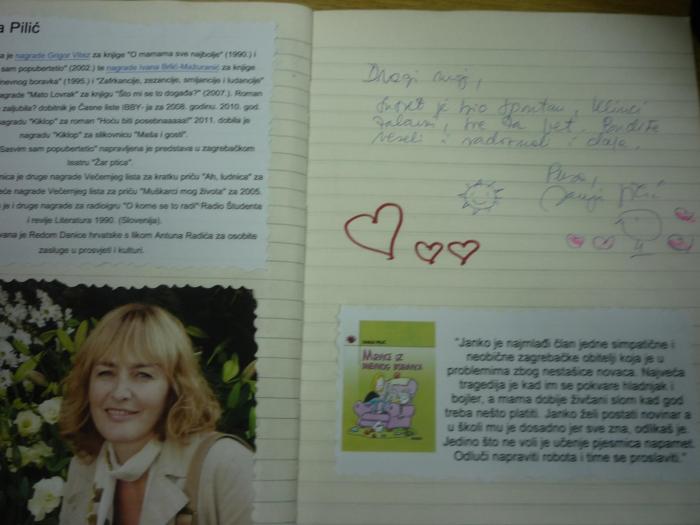 a Pilić
a je nagrade Grigor Vitez za knjige "O mamama sve najbolje" (1990.) i
sam popubertetio" (2002.) te nagrade Ivana Brlić-Mažuranić za knjige
nevnog boravka" (1995.) i "Zafrkancije, zezancije, smijancije i ludancije"
agrade "Mato Lovrak" za knjigu "Što mi se to događa?" (2007.). Roman
zaljubila? dobitnik je Časne liste IBBY- ja za 2008. godinu. 2010. god.
agradu "Kiklop" za roman "Hoću biti posebnaaaaa!" 2011. dobila je
nagradu "Kiklop" za slikovnicu "Maša i gosti".
Sasvim sam popubertetio" napravljena je predstava u zagrebačkom
teatru "Žar ptica".
nica je druge nagrade Večernjeg lista za kratku priču "Ah, ludnica" za
eće nagrade Večernjeg lista za priču "Muškarci mog života" za 2005.
je i druge nagrade za radioigru "O kome se to radi" Radio Študenta
i revije Literatura 1990. (Slovenija).
vana je Redom Danice hrvatske s likom Antuna Radića za osobite
zasluge u prosvjeti i kulturi.
Dragi moji,
je bio spontan, klinci
za pet. Budite
veseli i radoznali i dalje.
Pusa,
Sanja Pilić
SANJA PILIĆ
MRVICE IZ
DNEVNOG BORAVKA
"Janko je najmlađi član jedne simpatične i
neobične zagrebačke obitelji koja je u
problemima zbog nestašice novaca. Najveća
tragedija je kad im se pokvare hladnjak i
bojler, a mama dobije živčani slom kad god
treba nešto platiti. Janko želi postati novinar a
u školi mu je dosadno jer sve zna, odlikaš je.
Jedino što ne voli je učenje pjesmica napamet.
Odluči napraviti robota i time se proslaviti."